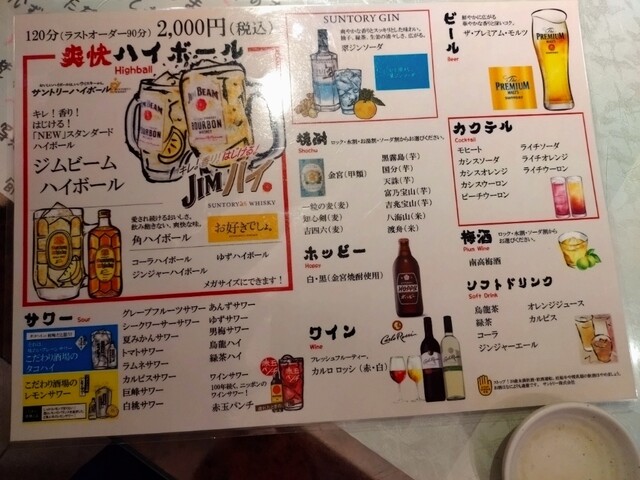 120分(ラストオーダー90分) 2,000円(税込)
爽快ハイボール
Highball
サントリーハイボール
キレ!香り!
はじける!
「NEW」スタンダード
ハイボール
ジムビーム
ハイボール
JIM BEAM
BOURBON
WHISKEY
キレ!香り!はじける!
JIMハイ。
SUNTORY WHISKY
愛され続けるおいしさ。
飲み飽きない、爽快な味。
角ハイボール
お好きでしょ。
コーラハイボール
ゆずハイボール
ジンジャーハイボール
メガサイズにできます!
サワー
Sour
こだわり酒場の
タコハイ
こだわり酒場の
レモンサワー
グレープフルーツサワー
シークヮーサーサワー
夏みかんサワー
トマトサワー
ラムネサワー
カルピスサワー
巨峰サワー
白桃サワー
あんずサワー
ゆずサワー
男梅サワー
烏龍ハイ
緑茶ハイ
ワインサワー
100年続く、ニッポンの
ワインサワー!
赤玉パンチ
SUNTORY GIN
翠ジンソーダ
焼酎
Shochu
ロック・水割・お湯割・ソーダ割からお選びください。
金宮(甲類)
一粒の麦(麦)
知心剣(麦)
吉四六(麦)
黒霧島(芋)
国分(芋)
天誅(芋)
富乃宝山(芋)
吉兆宝山(芋)
八海山(米)
渡舟(米)
ホッピー
Hoppy
白・黒(金宮焼酎使用)
ワイン
Wine
フレッシュフルーティー、
カルロ ロッシ(赤・白)
Carlo Rossi
ビール
Beer
ザ・プレミアム・モルツ
The PREMIUM MALT'S
カクテル
Cocktail
モヒート
カシスソーダ
カシスオレンジ
カシスウーロン
ピーチウーロン
ライチソーダ
ライチオレンジ
ライチウーロン
梅酒
Plum Wine
ロック・水割・ソーダ割から
お選びください。
南高梅酒
ソフトドリンク
Soft Drink
烏龍茶
緑茶
コーラ
ジンジャーエール
オレンジジュース
カルピス